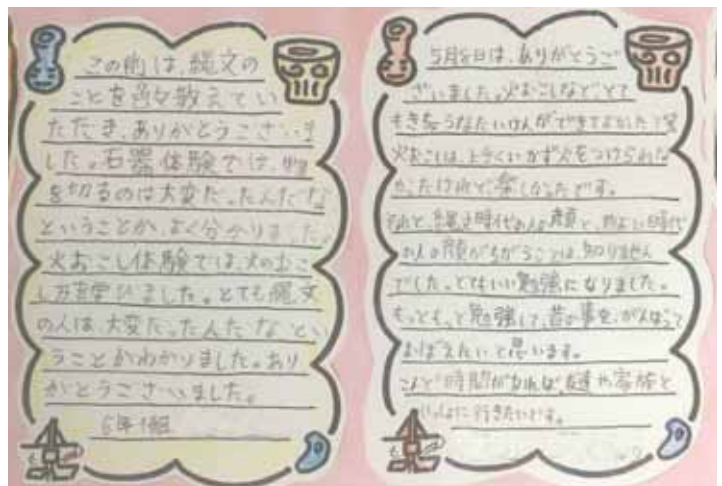 この前は、縄文の
ことを色々教えてい
ただき、ありがとうございま
した。石器体験では、物
を切るのは大変だったんだな
ということが、よく分かりました。
火おこし体験では、火のおこ
し方を学びました。とても縄文
の人は、大変だったんだなとい
うことがわかりました。あり
がとうございました。
6年1組
5月8日は、ありがとうご
ざいました。火おこしなど、とて
もきちょうなたいけんができてよかったです
火おこしは、上手くいかず火をつけられな
かったけれど、楽しかったです。
それと、縄文時代の人の顔と、やよい時代
の人の顔がちがうことは、知りません
でした。とてもいい勉強になりました。
もっともっと勉強して、昔の事を、がんばって
おぼえたいと思います。
こんど時間があれば、友達や家族と
いっしょに行きたいです。